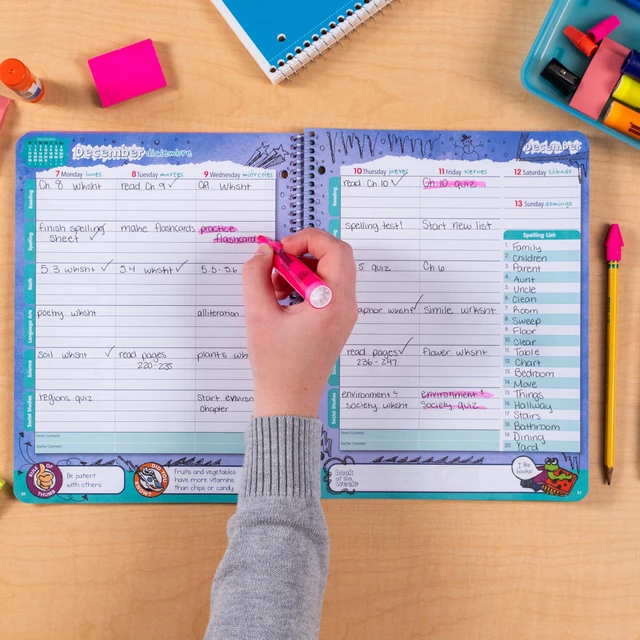 December diciembre
7 Monday lunes
8 Tuesday martes
9 Wednesday miércoles
Reading
Ch. 8 wksht
read Ch 9 ✓
Ch. 9 wksht
Spelling
finish spelling
sheet ✓
make flashcards
practice
flashcards
Math
5.3 wksht ✓
5.4 wksht ✓
5.5-5.6
Language Arts
poetry wksht
alliteration
Science
soil wksht ✓
read pages
220-235
plants
Social Studies
regions quiz
Start
chapter
RULE OF THUMB
Be patient
with others
Fruits and vegetables
have more vitamins
than chips or candy.
December
10 Thursday jueves
11 Friday viernes
12 Saturday sábado
13 Sunday domingo
read Ch 10 ✓
Ch 10 quiz
spelling test!
Start new list
5 quiz
Ch 6
wksht ✓
Simile wrksht
read pages ✓
236-247
flower wksht
environment &
society wksht
environment &
Society quiz
Spelling List
1. Family
2. Children
3. Parent
4. Aunt
5. Uncle
6. Clean
7. Room
8. Sweep
9. Floor
10. Clear
11. Table
12. Chart
13. Bedroom
14. Move
15. Things
16. Hallway
17. Stairs
18. Bathroom
19. Dining
20. Yard
I like
books!